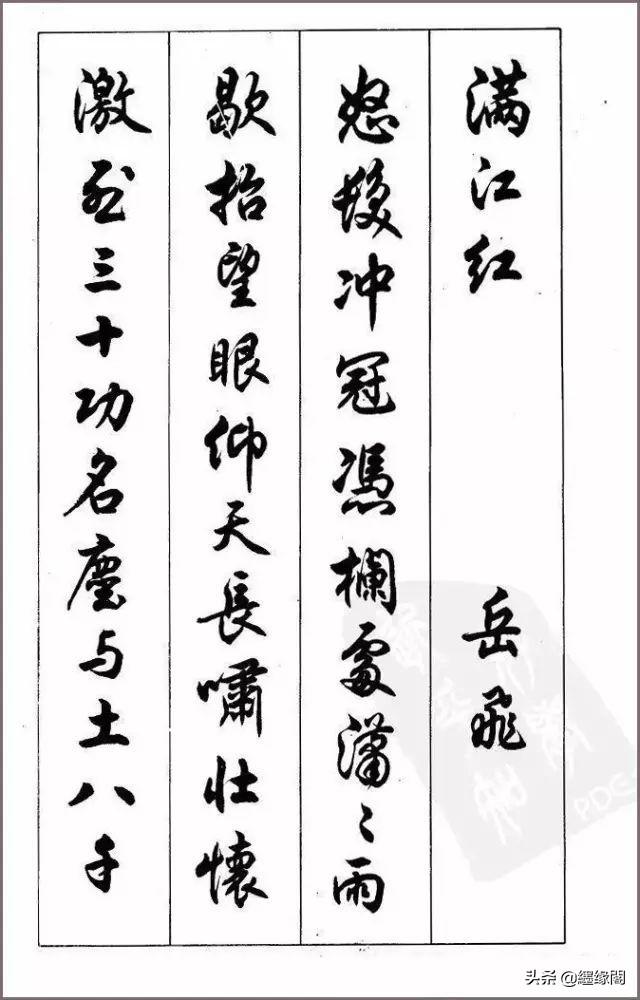 满江红 岳飛
怒髮冲冠憑欄處瀟〻雨
歇抬望眼仰天長嘯壯懷
激烈三十功名塵与土八千
头条 @纒缘閣
PDG